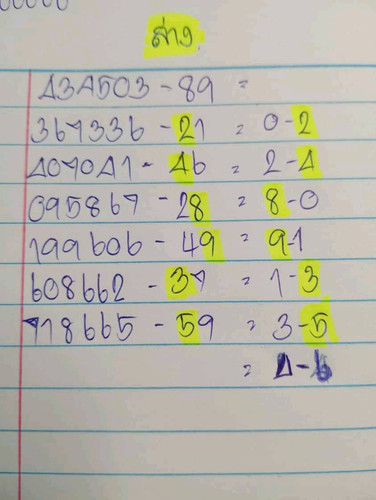 ล่าง
434503 - 89 =
367336 - 21 = 0-2
407041 - 46 = 2-4
095867 - 28 = 8-0
199606 - 49 = 9-1
608662 - 37 = 1-3
718665 - 59 = 3-5
= 4-6